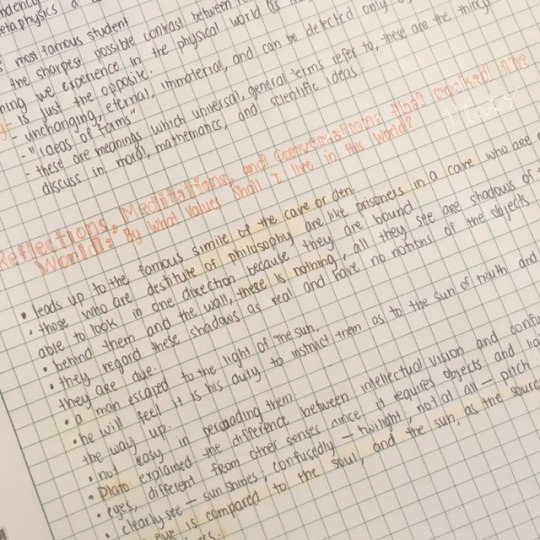 most famous student
the sharpest possible contrast between
we experience in the physical world
is just the opposite.
- unchanging, eternal, immaterial, and can be detected only
- "ideas of forms"
- these are meanings which universal, general terms refer to, these are the things
discuss in moral, mathematics, and scientific ideas.
Reflections, Meditations, and Conversations that marked the
World: By What Values Shall I live in this World?
• leads up to the famous simile of the cave or den
• those who are destitute of philosophy are like prisoners in a cave who are
able to look in one direction because they are bound
• behind them and the wall, there is nothing, all they see are shadows of
• they regard these shadows as real and have no notions of the objects
they are due.
• a man escaped to the light of the sun.
• he will feel it is his duty to instruct them as to the sun of truth and
the way up.
• not easy in persuading them.
• Plato explained the difference between intellectual vision and
• eyes, different from other senses since it requires objects and
• clearly see — sun shines, confusedly — twilight, not at all — pitch
eye is compared to the soul, and the sun, as the source